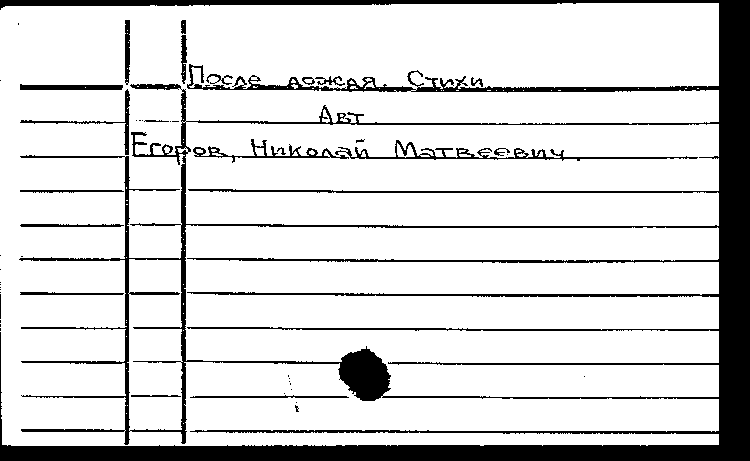 После дождя. Стихи.
Авт.
Егоров, Николай Матвеевич.